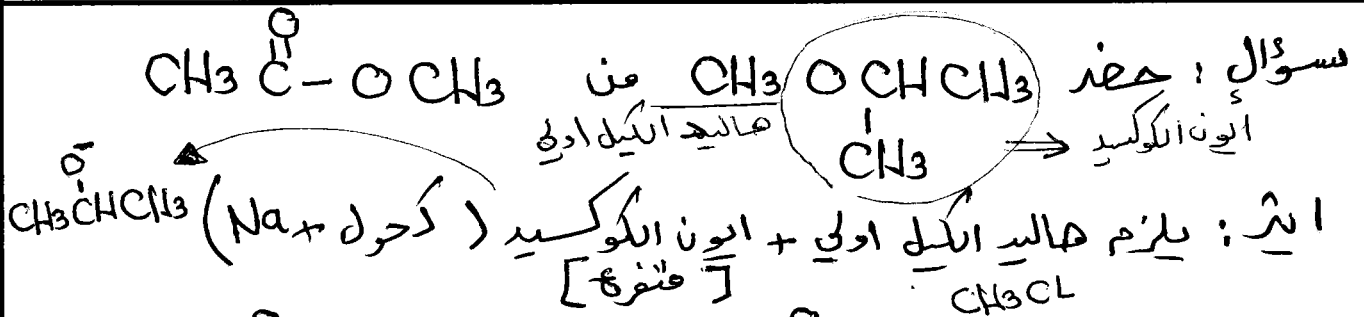 سؤال : حضر CH3 O CH CH3 من CH3 C - O CH3
O
CH3
هاليد الكيل اولي
ايون الكوكسيد
ايثر : يلزم هاليد الكيل اولي + ايون الكوكسيد ( كحول + Na )
CH3CL
[ متفرع ]
O-
CH3CHCH3